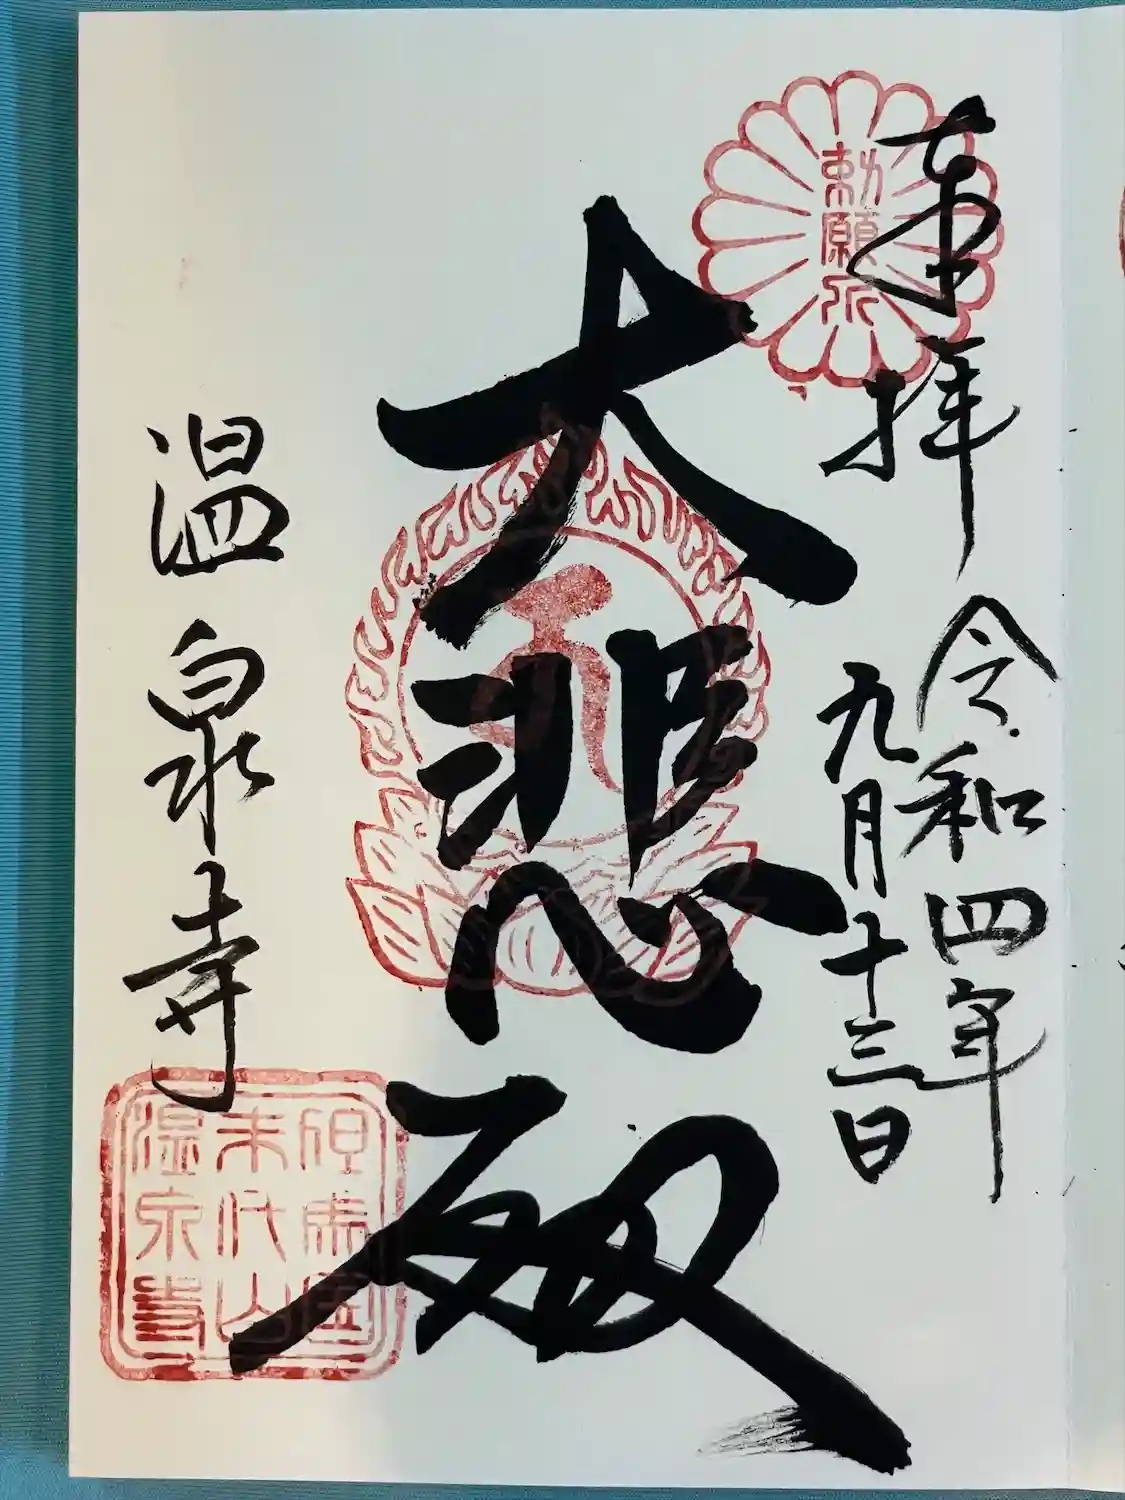 奉拝
令和四年
九月十三日
勅願所
大悲殿
温泉寺
但馬国
末代山
温泉寺